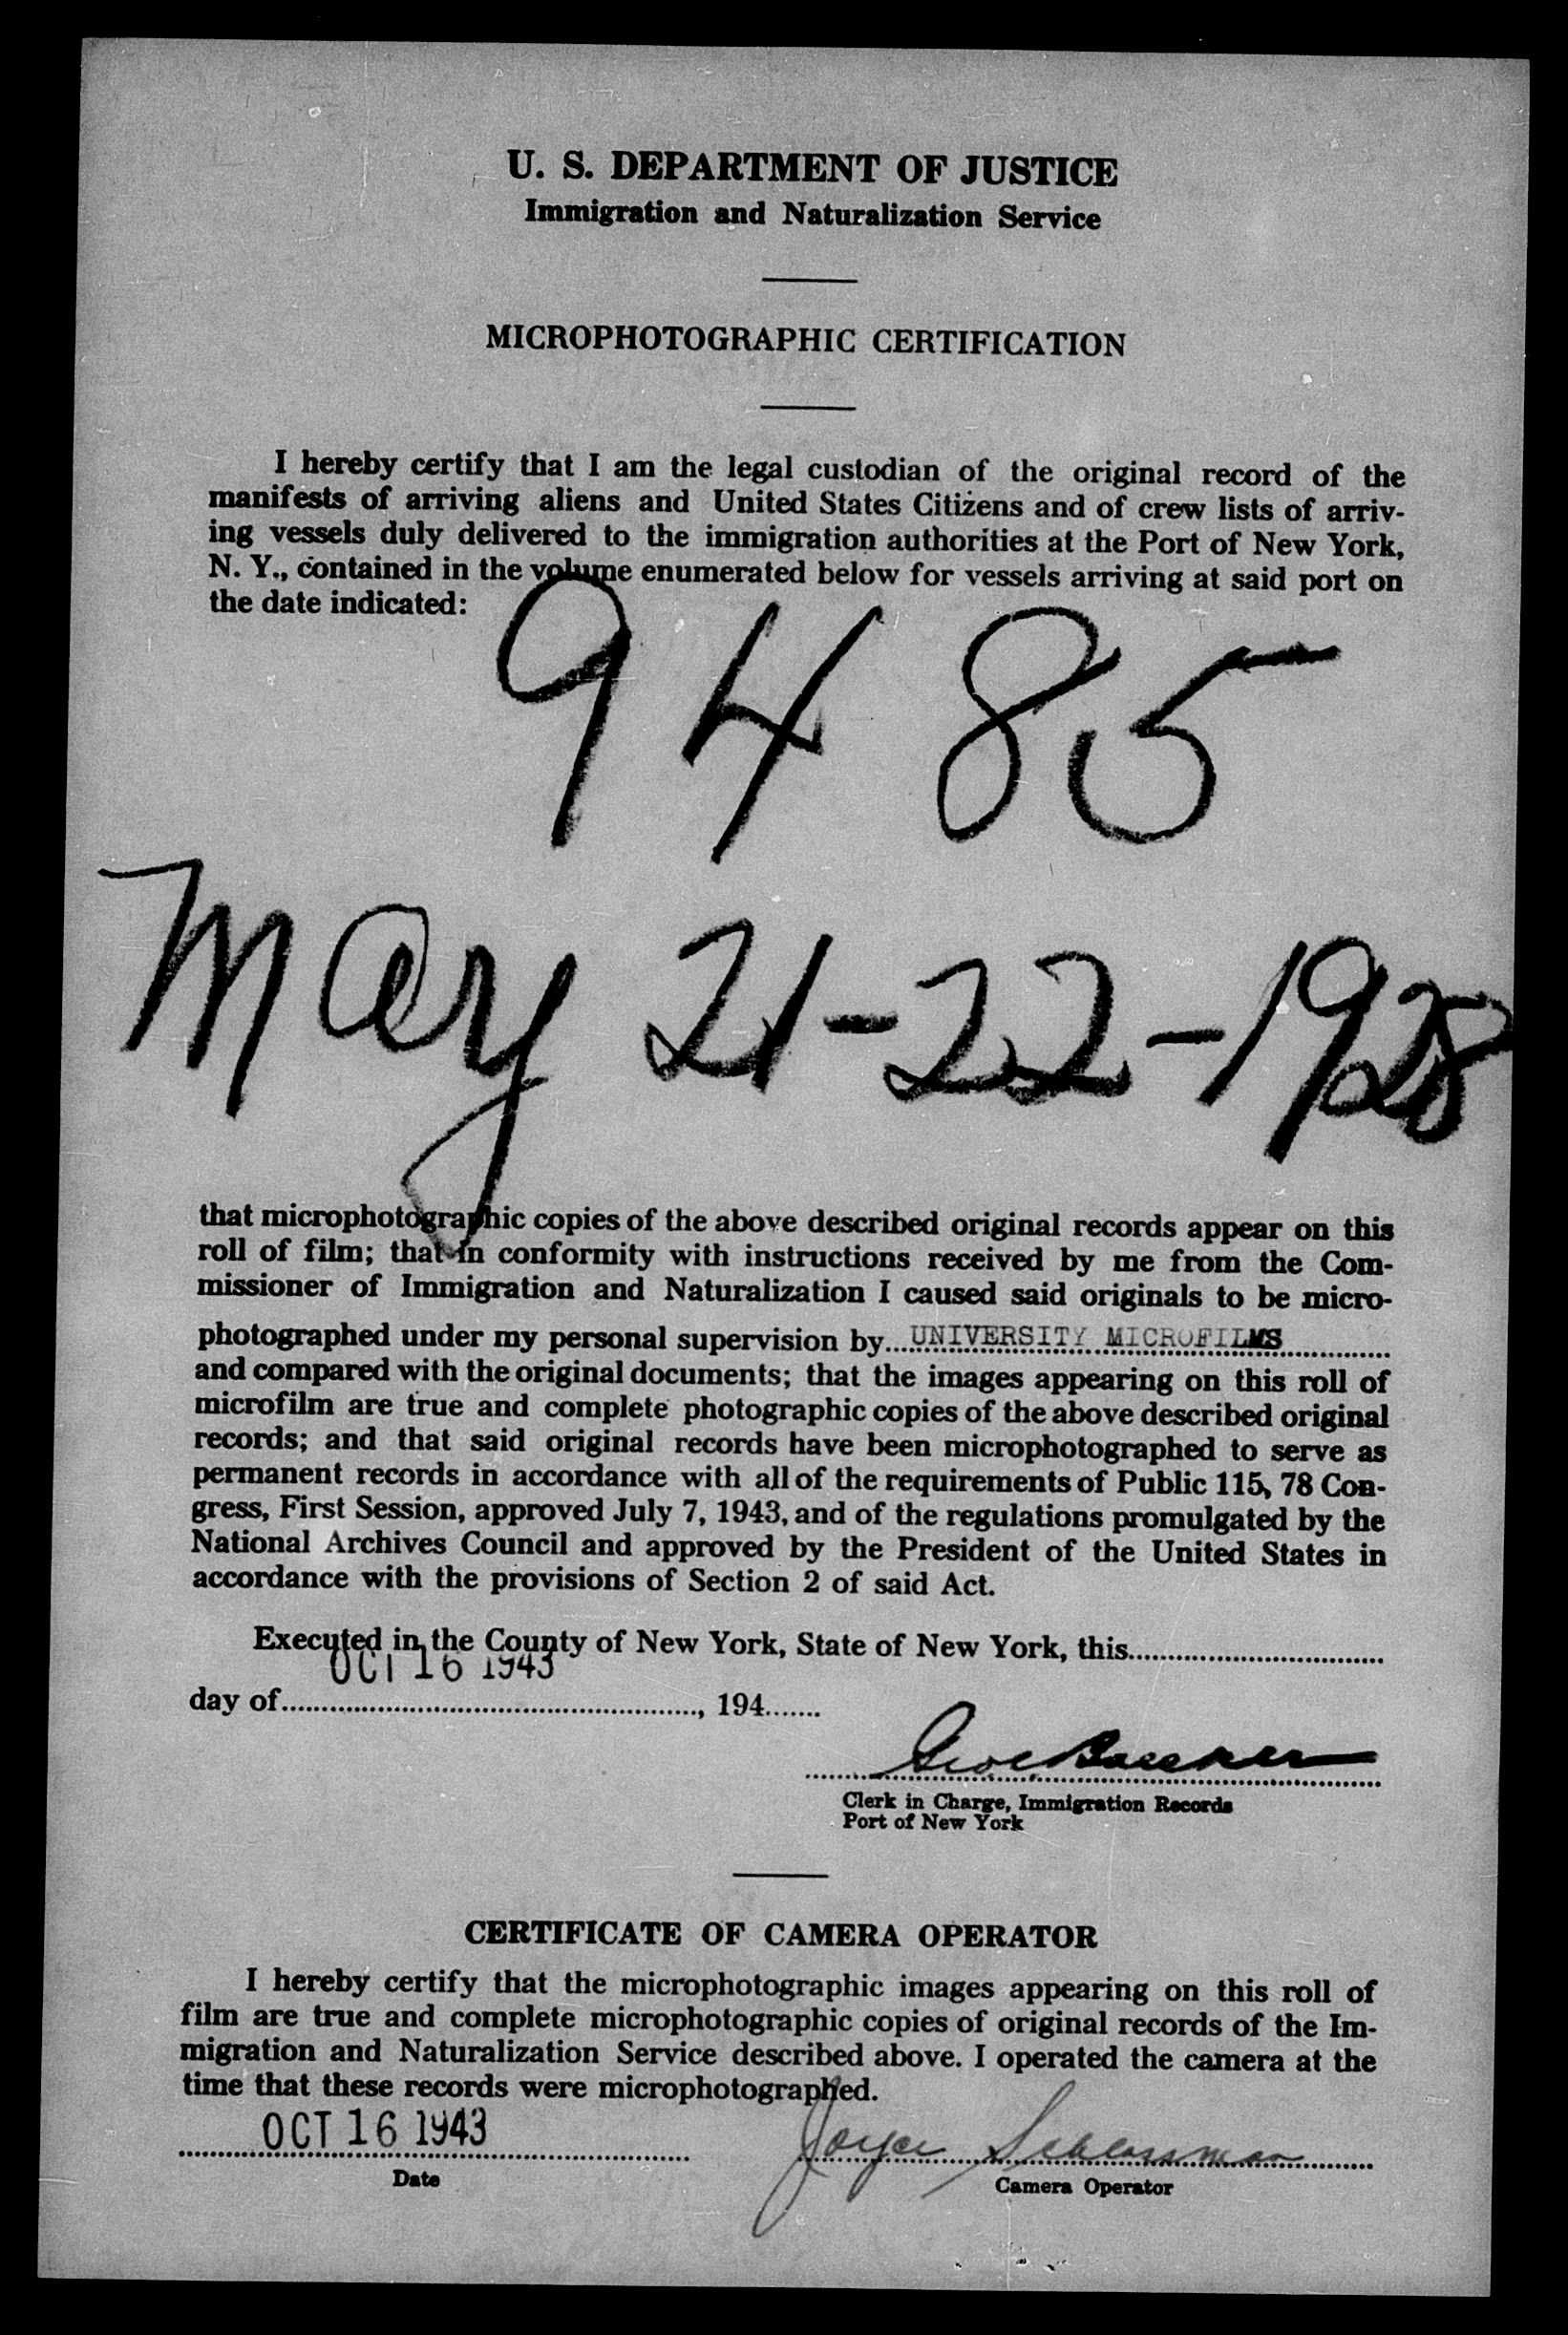 U. S. DEPARTMENT OF JUSTICE
Immigration and Naturalization Service
MICROPHOTOGRAPHIC CERTIFICATION
I hereby certify that I am the legal custodian of the original record of the
manifests of arriving aliens and United States Citizens and of crew lists of arriv-
ing vessels duly delivered to the immigration authorities at the Port of New York,
N. Y., contained in the volume enumerated below for vessels arriving at said port on
the date indicated:
9485
May 21-22-1928
that microphotographic copies of the above described original records appear on this
roll of film; that in conformity with instructions received by me from the Com-
missioner of Immigration and Naturalization I caused said originals to be micro-
photographed under my personal supervision by UNIVERSITY MICROFILMS
and compared with the original documents; that the images appearing on this roll of
microfilm are true and complete photographic copies of the above described original
records; and that said original records have been microphotographed to serve as
permanent records in accordance with all of the requirements of Public 115, 78 Con-
gress, First Session, approved July 7, 1943, and of the regulations promulgated by the
National Archives Council and approved by the President of the United States in
accordance with the provisions of Section 2 of said Act.
Executed in the County of New York, State of New York, this
OCT 16 1943
day of, 194
Clerk in Charge, Immigration Records
Port of New York
CERTIFICATE OF CAMERA OPERATOR
I hereby certify that the microphotographic images appearing on this roll of
film are true and complete microphotographic copies of original records of the Im-
migration and Naturalization Service described above. I operated the camera at the
time that these records were microphotographed.
OCT 16 1943 Joyce Schlossman
Date
Camera Operator